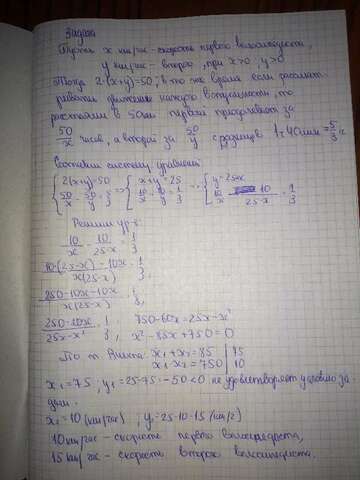 Задача
Пусть x км/час - скорость первого велосипедиста,
y км/час - второго, при x>0, y>0
Тогда 2·(x+y)=50, в то же время если рассмат-
ривать движение каждого в отдельности, то
расстояние в 50 км первый преодолевает за
50/x часов, а второй за 50/y с разницей в 1 ч 40 мин = 5/3 ч.
Составим систему уравнений:
{ 2(x+y)=50 => { x+y=25 => { y=25-x
{ 50/x - 50/y = 5/3 { 10/x - 10/y = 1/3 { 10/x - 10/25-x = 1/3
Решим ур-е:
10/x - 10/25-x = 1/3
10·(25-x)-10x / x(25-x) = 1/3
250-10x-10x / x(25-x) = 1/3,
250-20x / 25x-x² = 1/3, 750-60x=25x-x²
x²-85x+750=0
По т. Виета: x₁+x₂=85 | 75
x₁·x₂=750 | 10
x₁=75, y₁=25-75=-50<0 не удовлетворяет условию за-
дачи.
x₂=10 (км/час), y₂=25-10=15 (км/ч)
10 км/час - скорость первого велосипедиста,
15 км/час - скорость второго велосипедиста.